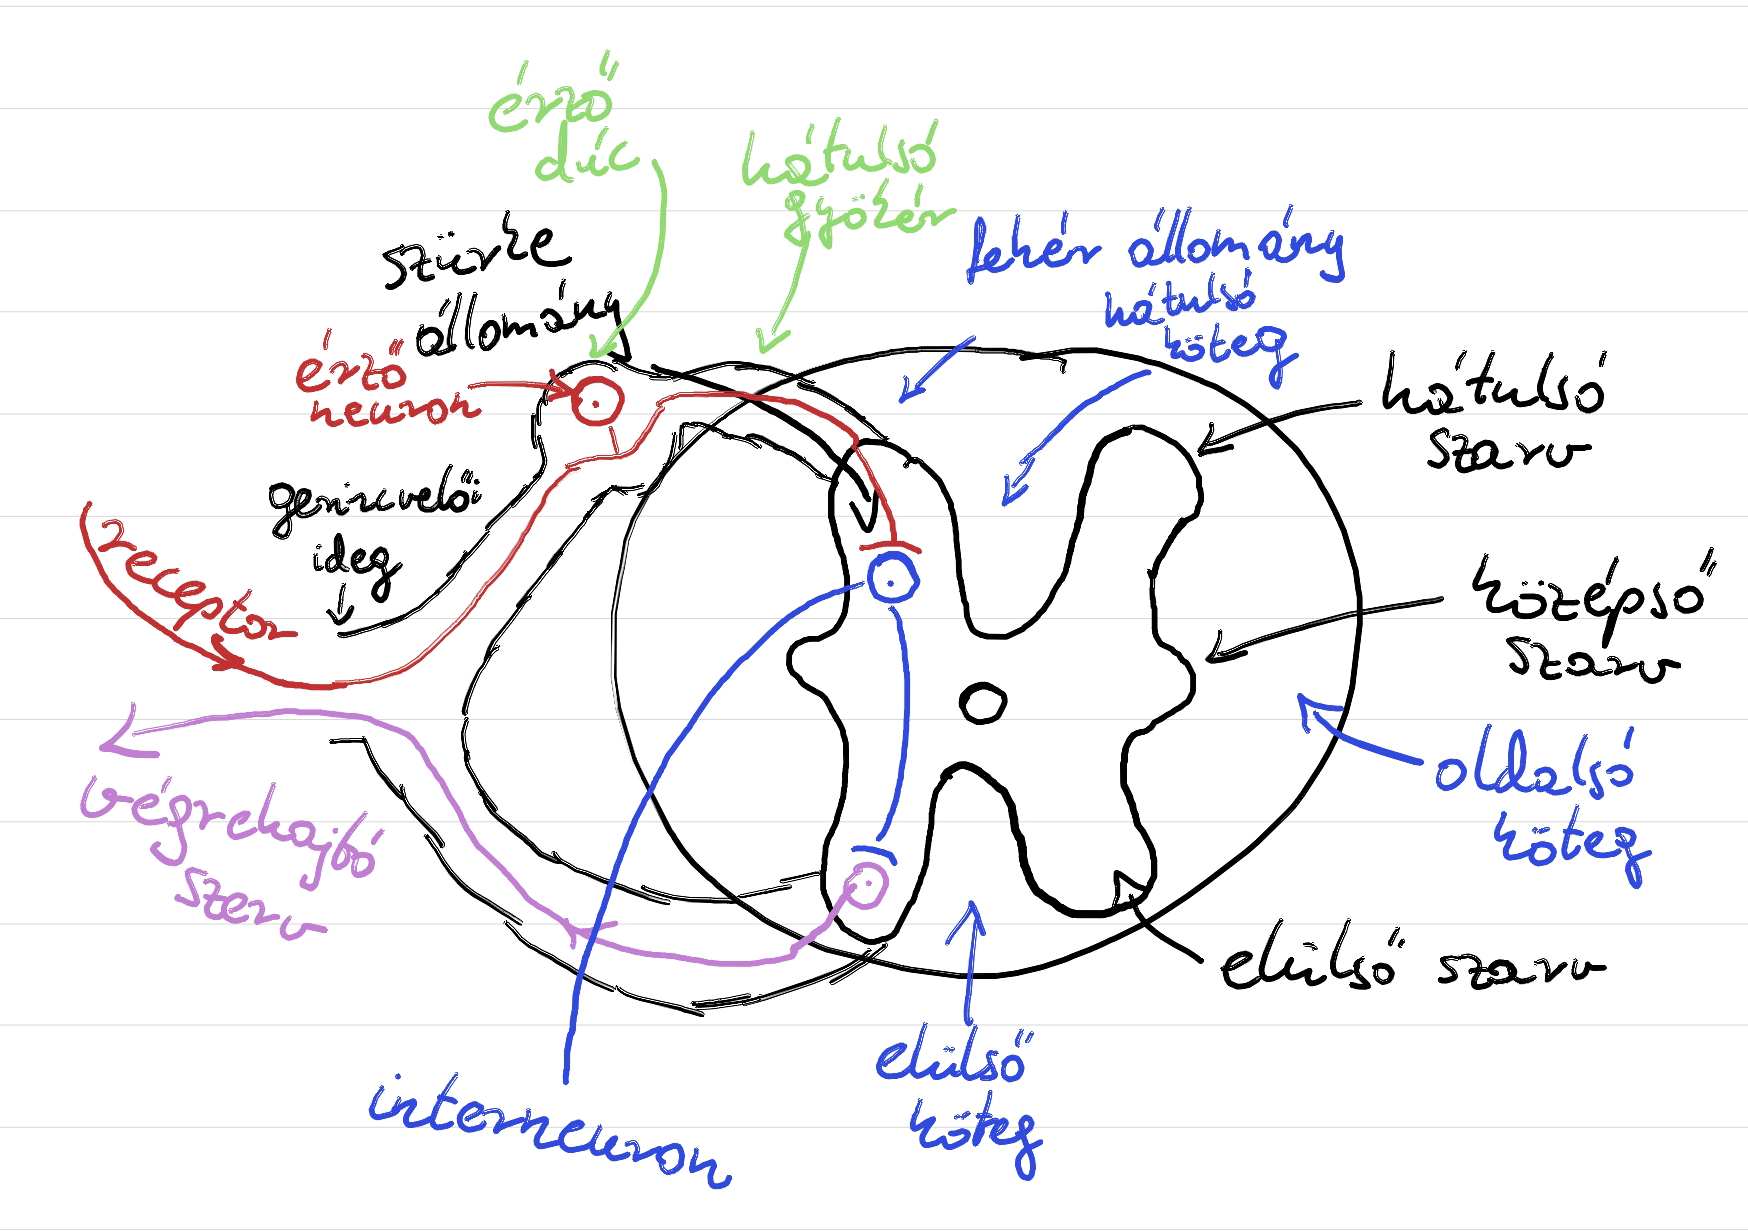 érző
dúc
hátulsó
gyökér
szürke
állomány
fehér állomány
hátulsó
köteg
érző
neuron
hátulsó
szarv
gerincvelői
ideg
receptor
középső
szarv
oldalsó
köteg
végrehajtó
szerv
elülső szarv
elülső
köteg
interneuron